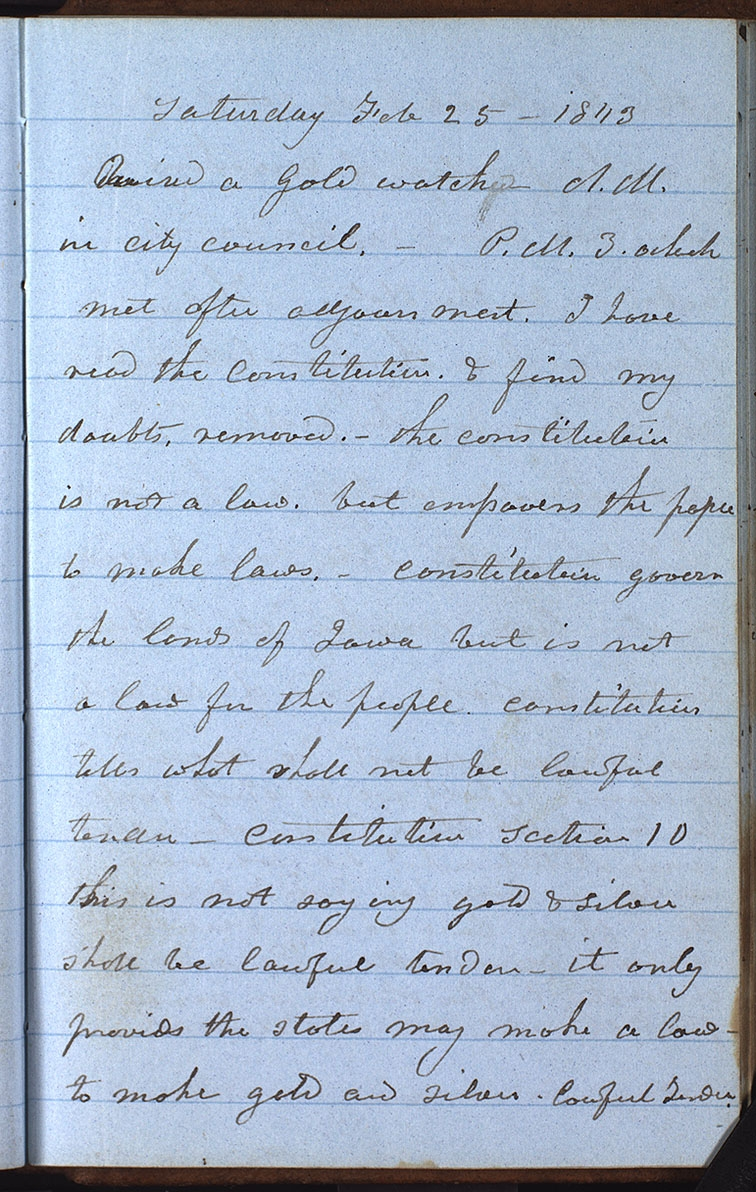 Saturday Feb 25 - 1843
a Gold watch A.M.
in city council. - P.M. 3. oclock
met after adjournment. I have
read the constitution. & find my
doubts, removed. - the constitution
is not a law. but empowers the people
to make laws. - constitution govern
the lands of Iowa but is not
a law for the people. constitution
tells what shall not be lawful
tender - constitution section 10
this is not saying gold & silver
shall be lawful tender - it only
provids the states may make a law -
to make gold and silver - lawful Tender.